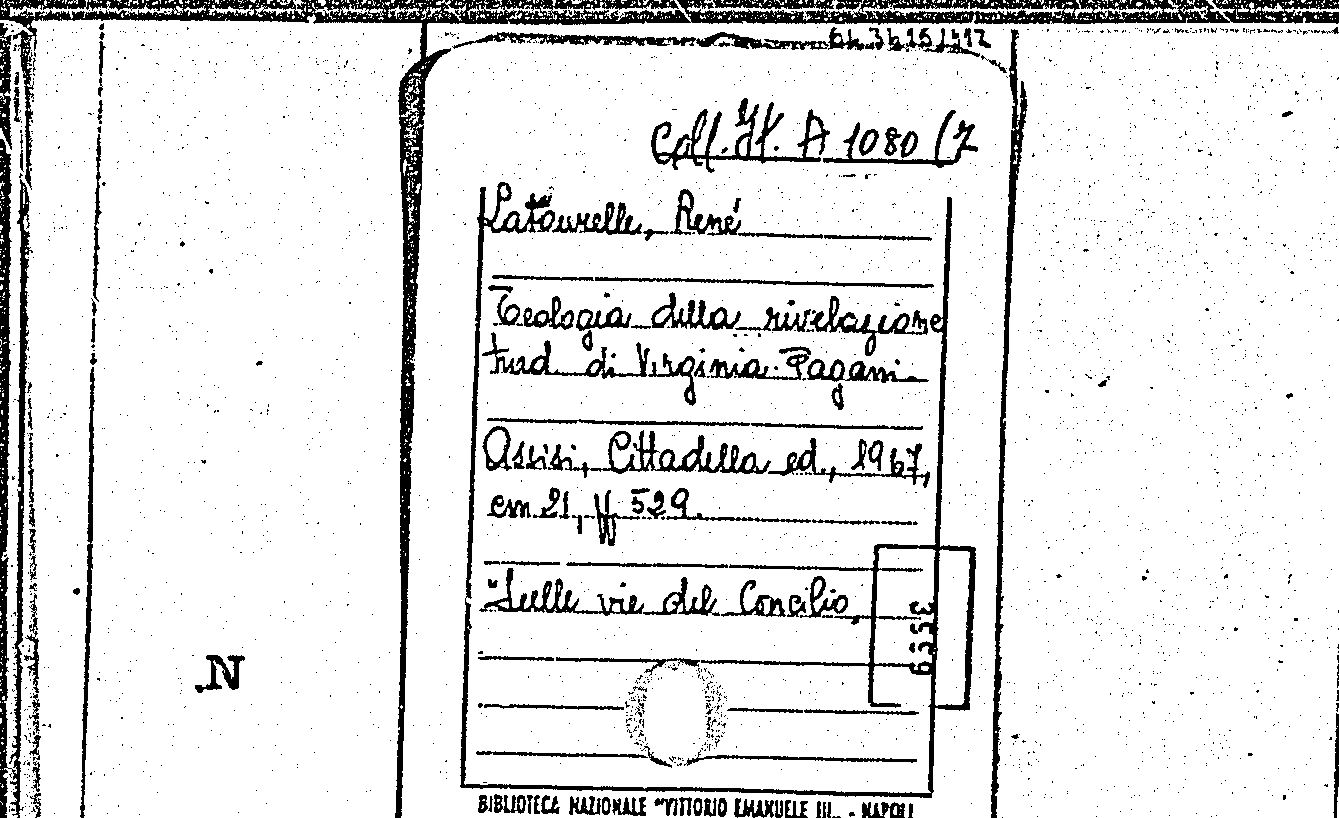 Coll. It. A 1080 (7
Latourelle, René
Teologia della rivelazione
trad. di Virginia Pagani.
Assisi, Cittadella ed., 1967,
cm 21, pp 529.
"Sulle vie del Concilio,
3559
N.
BIBLIOTECA NAZIONALE "VITTORIO EMANUELE III„ - NAPOLI